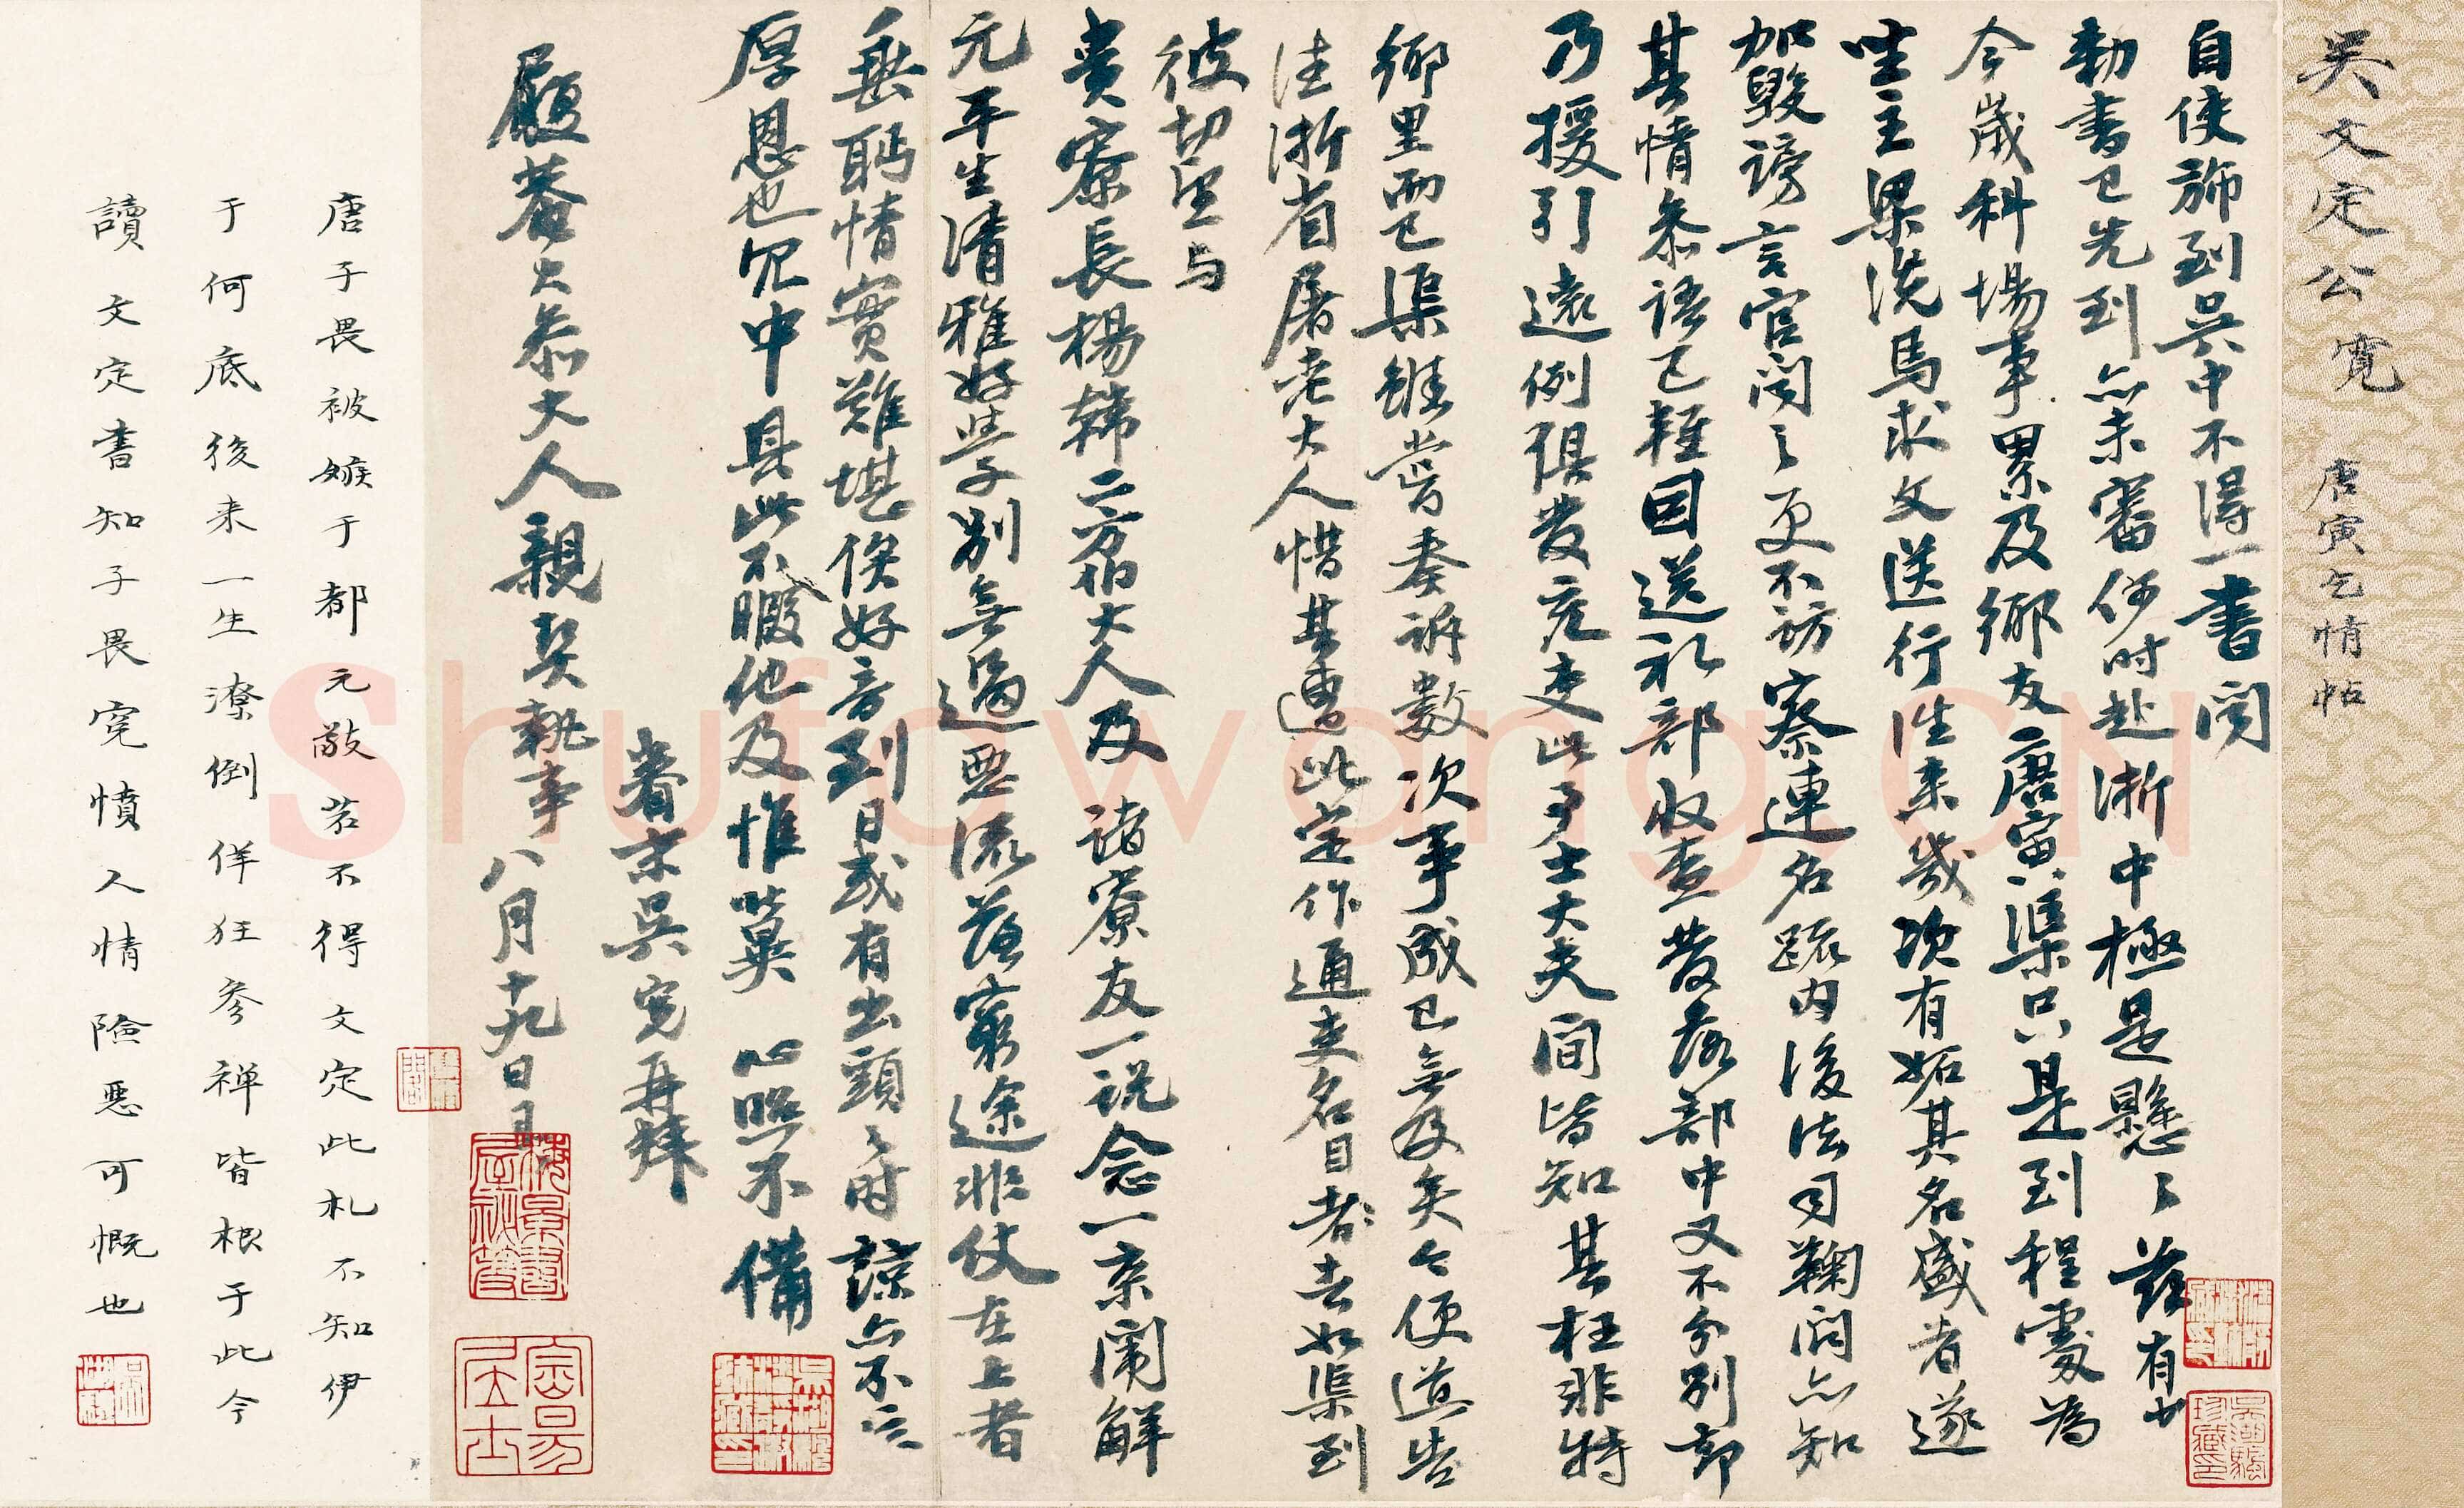 吳文定公寬 唐寅乞情帖
自使旆到吳中不得一書聞
勅書已先到亦未審何時赴浙中極是懸懸茲有少
今歲科場事累及鄉友唐寅渠只是到程處為
坐主梁洗馬求文送行往來幾次有妬其名盛者遂
加毀謗言官聞之更不訪察連名疏內後法司鞠問亦知
其情參語已輕因送禮部收查發落部中又不分別部
乃援引遠例俱發充吏此事士大夫間皆知其枉非特
鄉里而已渠雖嘗奏訴數次事成已無及矣今便道告
往浙省屠老大人惜其遭此定作通吏名目者去如渠到
彼切望与
貴寮長楊韓二方伯大人及諸寮友一說念一京闈解
元平生清雅好學別無過惡流落窮途非仗在上者
垂盻情實難堪俟好音到日或有出頭之時諒亦不忘
厚恩也冗中具此不暇他及惟冀 心照不備
眷末吳寬再拜
履菴大參大人親契執事八月十九日具
唐子畏被嫉于都元敬若不得文定此札不知伊
于何底後來一生潦倒佯狂參禪皆根于此今
讀文定書知子畏寃憤人情險惡可慨也
Shufawang.CN